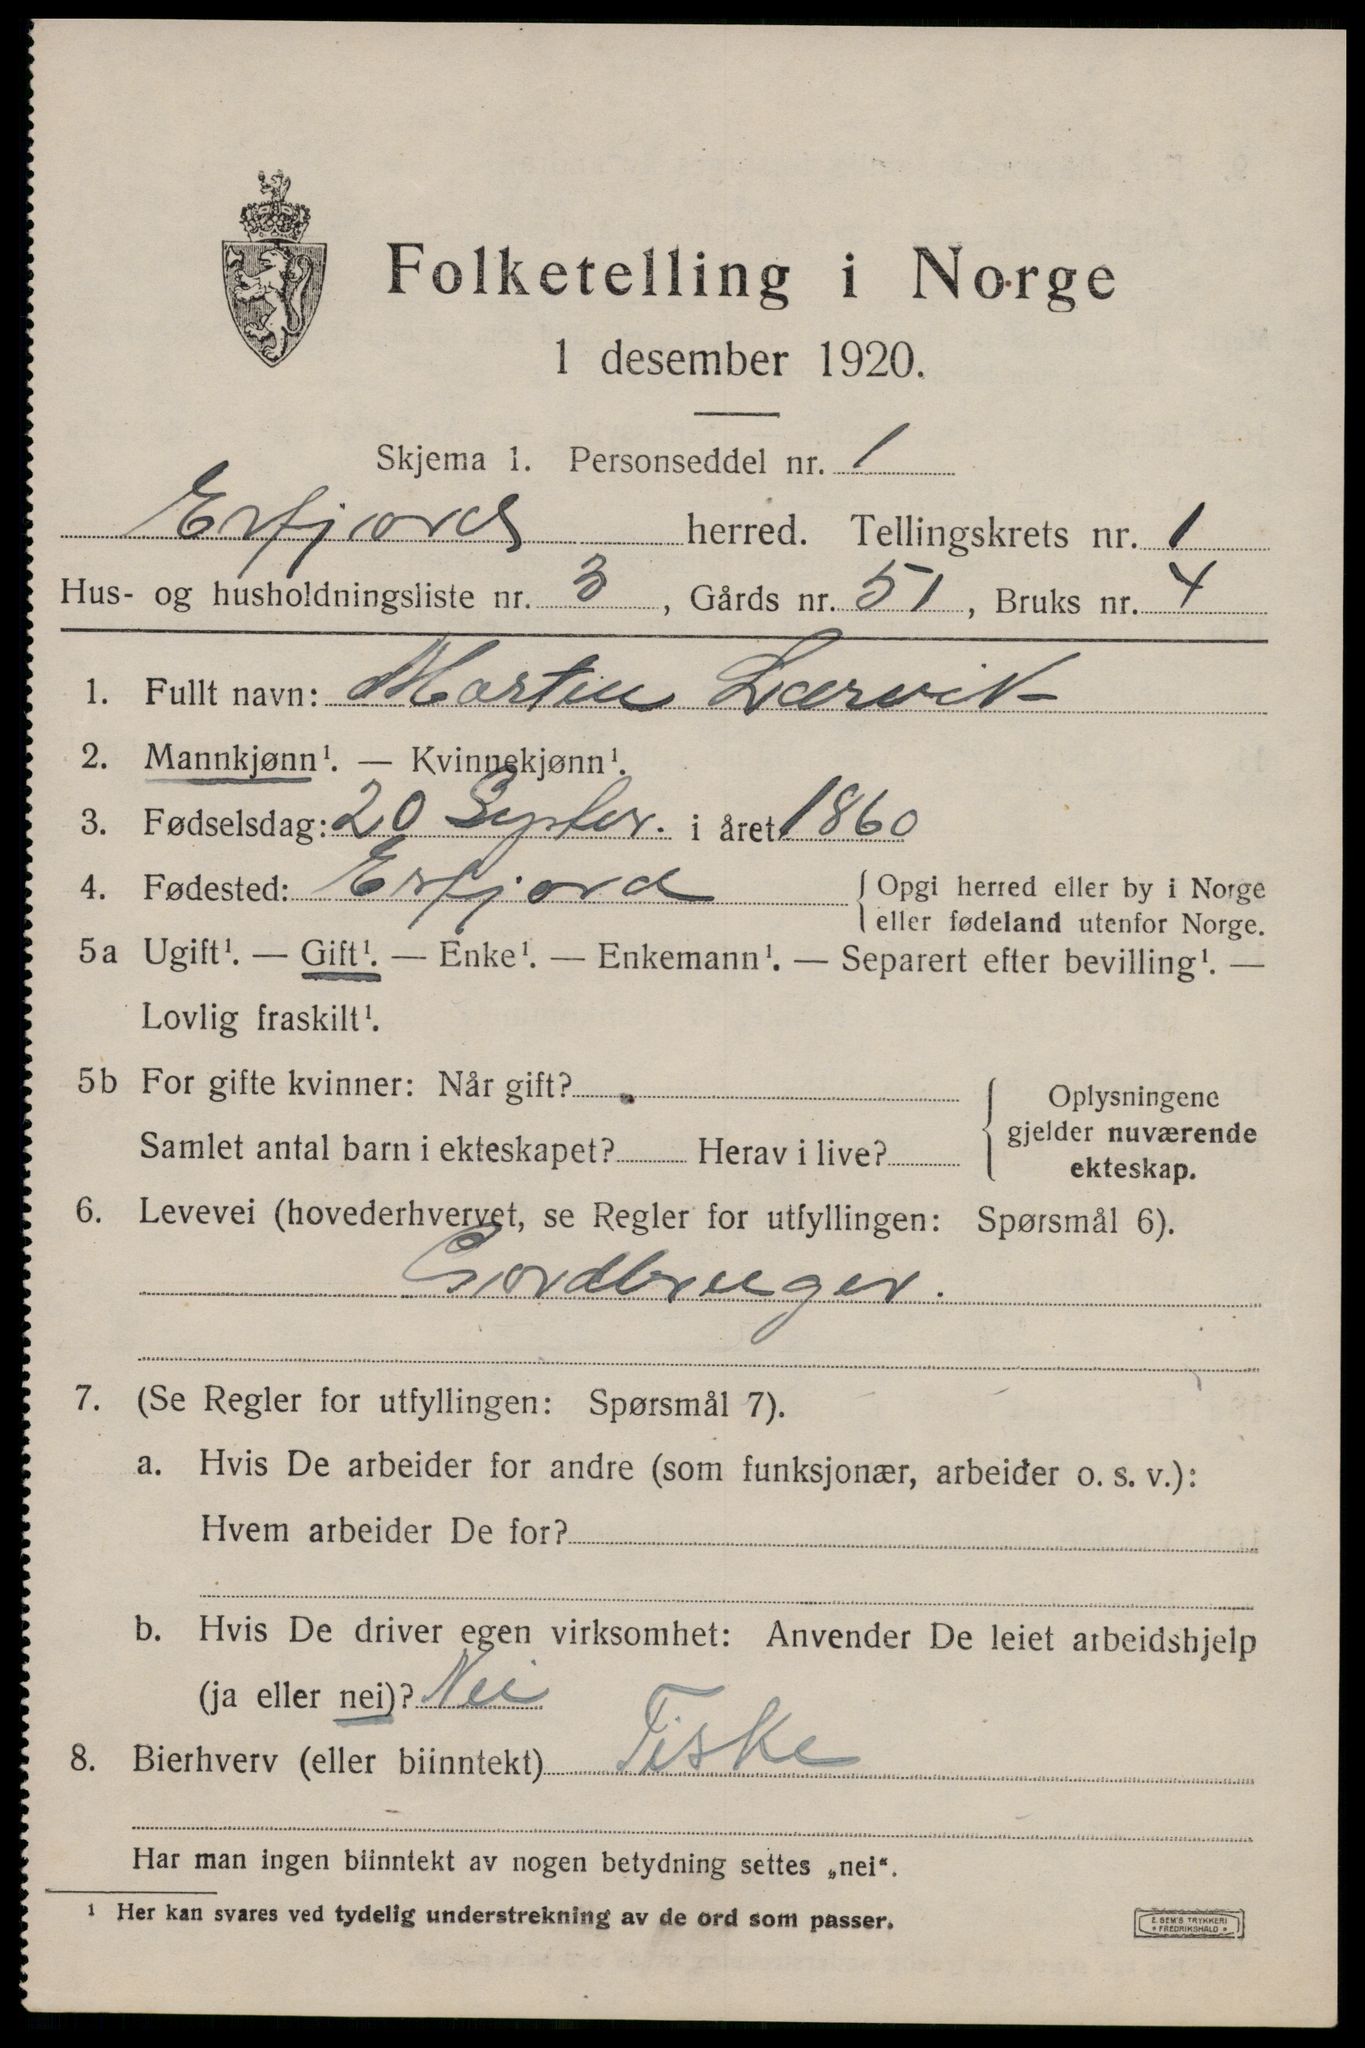 Folketelling i Norge
1 desember 1920.
Skjema 1. Personseddel nr. 1
Erfjord herred. Tellingskrets nr. 1
Hus- og husholdningsliste nr. 3, Gårds nr. 51, Bruks nr. 4
1. Fullt navn: Martin Lærvik
2. Mannkjønn¹. — Kvinnekjønn¹.
3. Fødselsdag: 20 Septbr. i året 1860
4. Fødested: Erfjord { Opgi herred eller by i Norge
eller fødeland utenfor Norge.
5a Ugift¹. — Gift¹. — Enke¹. — Enkemann¹. — Separert efter bevilling¹. —
Lovlig fraskilt¹.
5b For gifte kvinner: Når gift?
Samlet antal barn i ekteskapet? Herav i live?
Oplysningene
gjelder nuværende
ekteskap.
6. Levevei (hovederhvervet, se Regler for utfyllingen: Spørsmål 6).
Gordbruger.
7. (Se Regler for utfyllingen: Spørsmål 7).
a. Hvis De arbeider for andre (som funksjonær, arbeider o. s. v.):
Hvem arbeider De for?
b. Hvis De driver egen virksomhet: Anvender De leiet arbeidshjelp
(ja eller nei)? Nei
8. Bierhverv (eller biinntekt) Fiske
Har man ingen biinntekt av nogen betydning settes „nei“.
¹ Her kan svares ved tydelig understrekning av de ord som passer.
E. SEM'S TRYKKERI
* FREDRIKSHALD *